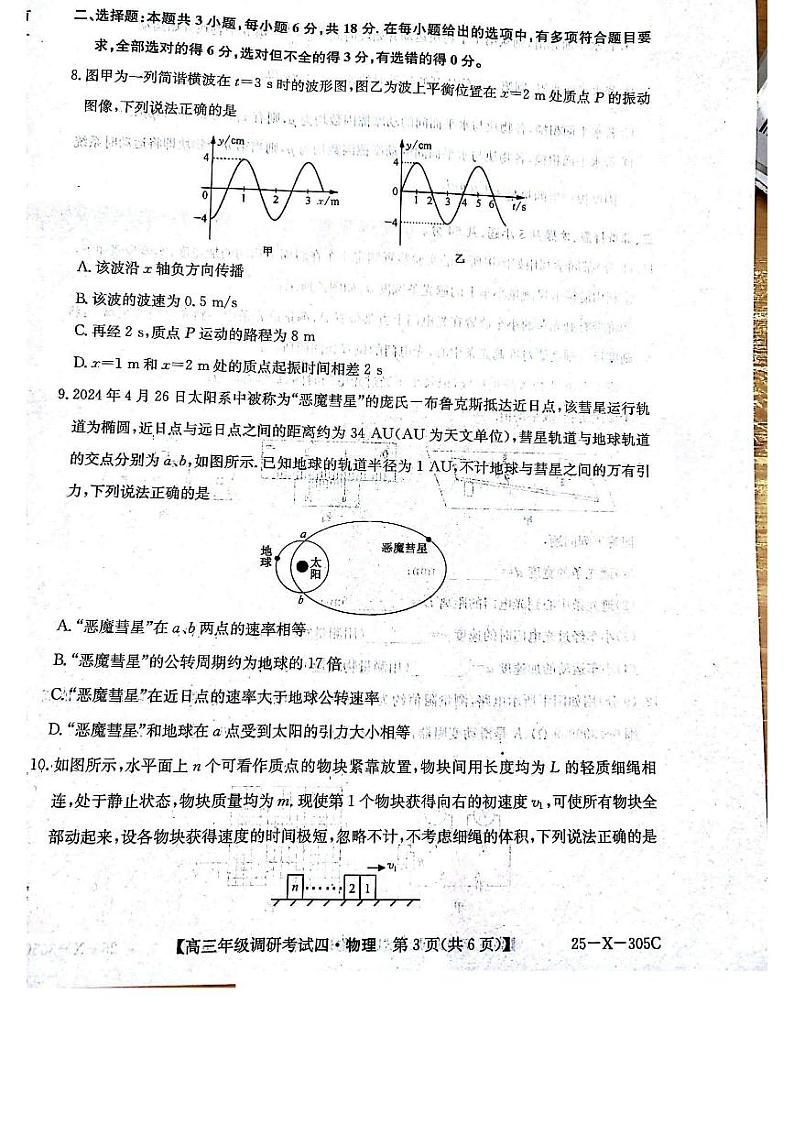 二、选择题：本题共 3 小题，每小题 6 分，共 18 分. 在每小题给出的选项中，有多项符合题目要
求，全部选对的得 6 分，选对但不全的得 3 分，有选错的得 0 分。
8. 图甲为一列简谐横波在 t=3 s 时的波形图，图乙为波上平衡位置在 x=2 m 处质点 P 的振动
图像，下列说法正确的是
y/cm
4
0
-4
1
2
3
x/m
甲
y/cm
4
0
-4
1 2 3 4 5 6
t/s
乙
A. 该波沿 x 轴负方向传播
B. 该波的波速为 0.5 m/s
C. 再经 2 s，质点 P 运动的路程为 8 m
D. x=1 m 和 x=2 m 处的质点起振时间相差 2 s
9. 2024 年 4 月 26 日太阳系中被称为“恶魔彗星”的庞氏－布鲁克斯抵达近日点，该彗星运行轨
道为椭圆，近日点与远日点之间的距离约为 34 AU(AU 为天文单位)，彗星轨道与地球轨道
的交点分别为 a、b，如图所示. 已知地球的轨道半径为 1 AU，不计地球与彗星之间的万有引
力，下列说法正确的是
a
地球
太阳
恶魔彗星
b
A. “恶魔彗星”在 a、b 两点的速率相等
B. “恶魔彗星”的公转周期约为地球的 17 倍
C. “恶魔彗星”在近日点的速率大于地球公转速率
D. “恶魔彗星”和地球在 a 点受到太阳的引力大小相等
10. 如图所示，水平面上 n 个可看作质点的物块紧靠放置，物块间用长度均为 L 的轻质细绳相
连，处于静止状态，物块质量均为 m. 现使第 1 个物块获得向右的初速度 v₁，可使所有物块全
部动起来，设各物块获得速度的时间极短，忽略不计，不考虑细绳的体积，下列说法正确的是
v₁
n ······ 2 1
【高三年级调研考试四·物理　第 3 页(共 6 页)】 25－X－305C